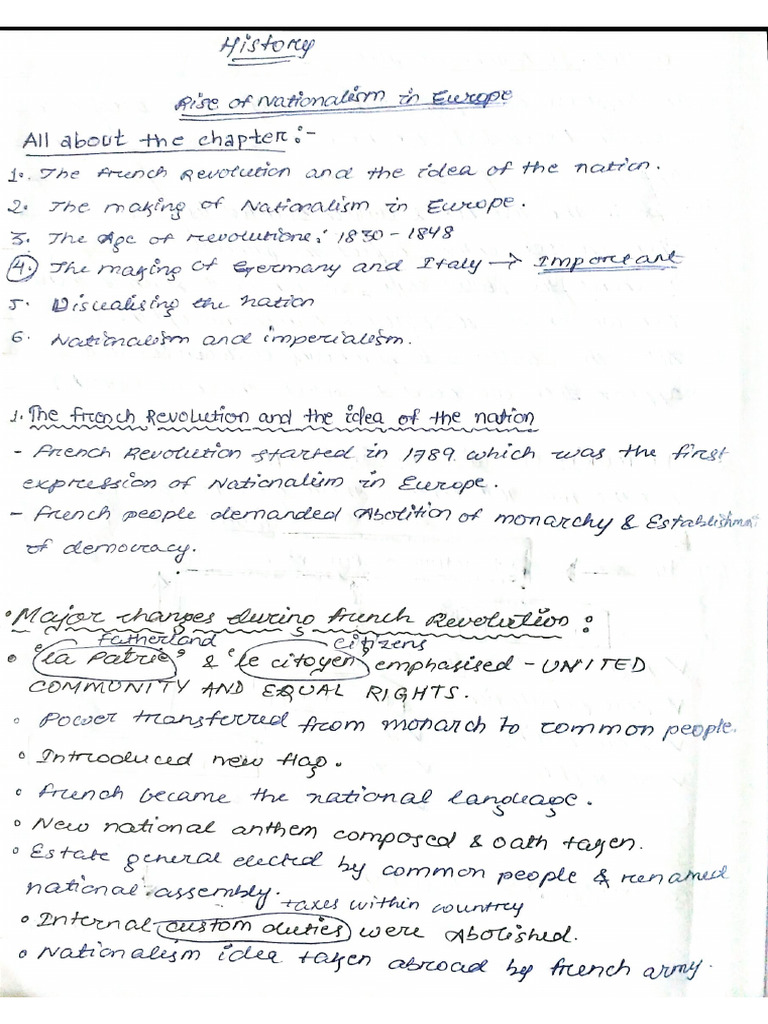 History
Rise of Nationalism in Europe
All about the chapter:-
1. The French Revolution and the idea of the nation.
2. The making of Nationalism in Europe.
3. The Age of revolutions: 1830-1848
4. The making of Germany and Italy → Important
5. Visualising the nation
6. Nationalism and imperialism.
1. The French Revolution and the idea of the nation
- French Revolution started in 1789. which was the first
expression of Nationalism in Europe.
- French people demanded Abolition of monarchy & Establishment
of democracy.
• Major changes during French Revolution:
Fatherland citizens
• 'la Patrie' & 'le citoyen' emphasised - UNITED
COMMUNITY AND EQUAL RIGHTS.
• Power transferred from monarch to common people.
• Introduced new flag.
• French became the national language.
• New national anthem composed & oath taken.
• Estate general elected by common people & renamed
national assembly.
taxes within country
• Internal custom duties were Abolished.
• Nationalism idea taken abroad by French army.